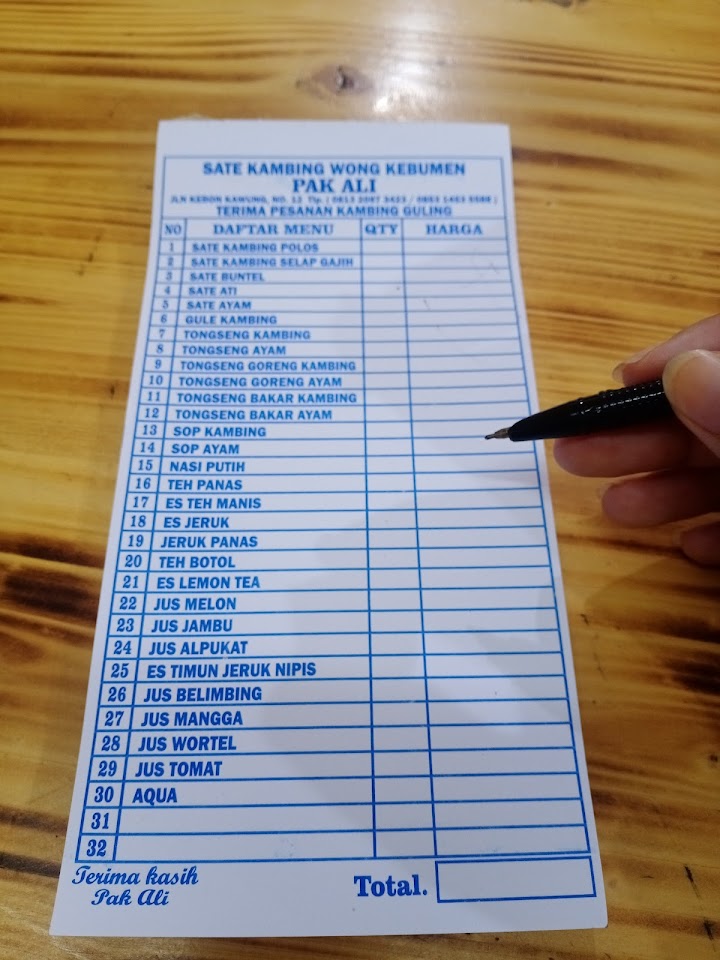 SATE KAMBING WONG KEBUMEN
PAK ALI
JLN KEBON KAWUNG, NO. 12 Tlp. ( 0813 2087 3423 /
TERIMA PESANAN KAMBING GULING
NO DAFTAR MENU QTY HARGA
1 SATE KAMBING POLOS
2 SATE KAMBING SELAP GAJIH
3 SATE BUNTEL
4 SATE ATI
5 SATE AYAM
6 GULE KAMBING
7 TONGSENG KAMBING
8 TONGSENG AYAM
9 TONGSENG GORENG KAMBING
10 TONGSENG GORENG AYAM
11 TONGSENG BAKAR KAMBING
12 TONGSENG BAKAR AYAM
13 SOP KAMBING
14 SOP AYAM
15 NASI PUTIH
16 TEH PANAS
17 ES TEH MANIS
18 ES JERUK
19 JERUK PANAS
20 TEH BOTOL
21 ES LEMON TEA
22 JUS MELON
23 JUS JAMBU
24 JUS ALPUKAT
25 ES TIMUN JERUK NIPIS
26 JUS BELIMBING
27 JUS MANGGA
28 JUS WORTEL
29 JUS TOMAT
30 AQUA
31
32
Terima kasih
Pak Ali
Total.